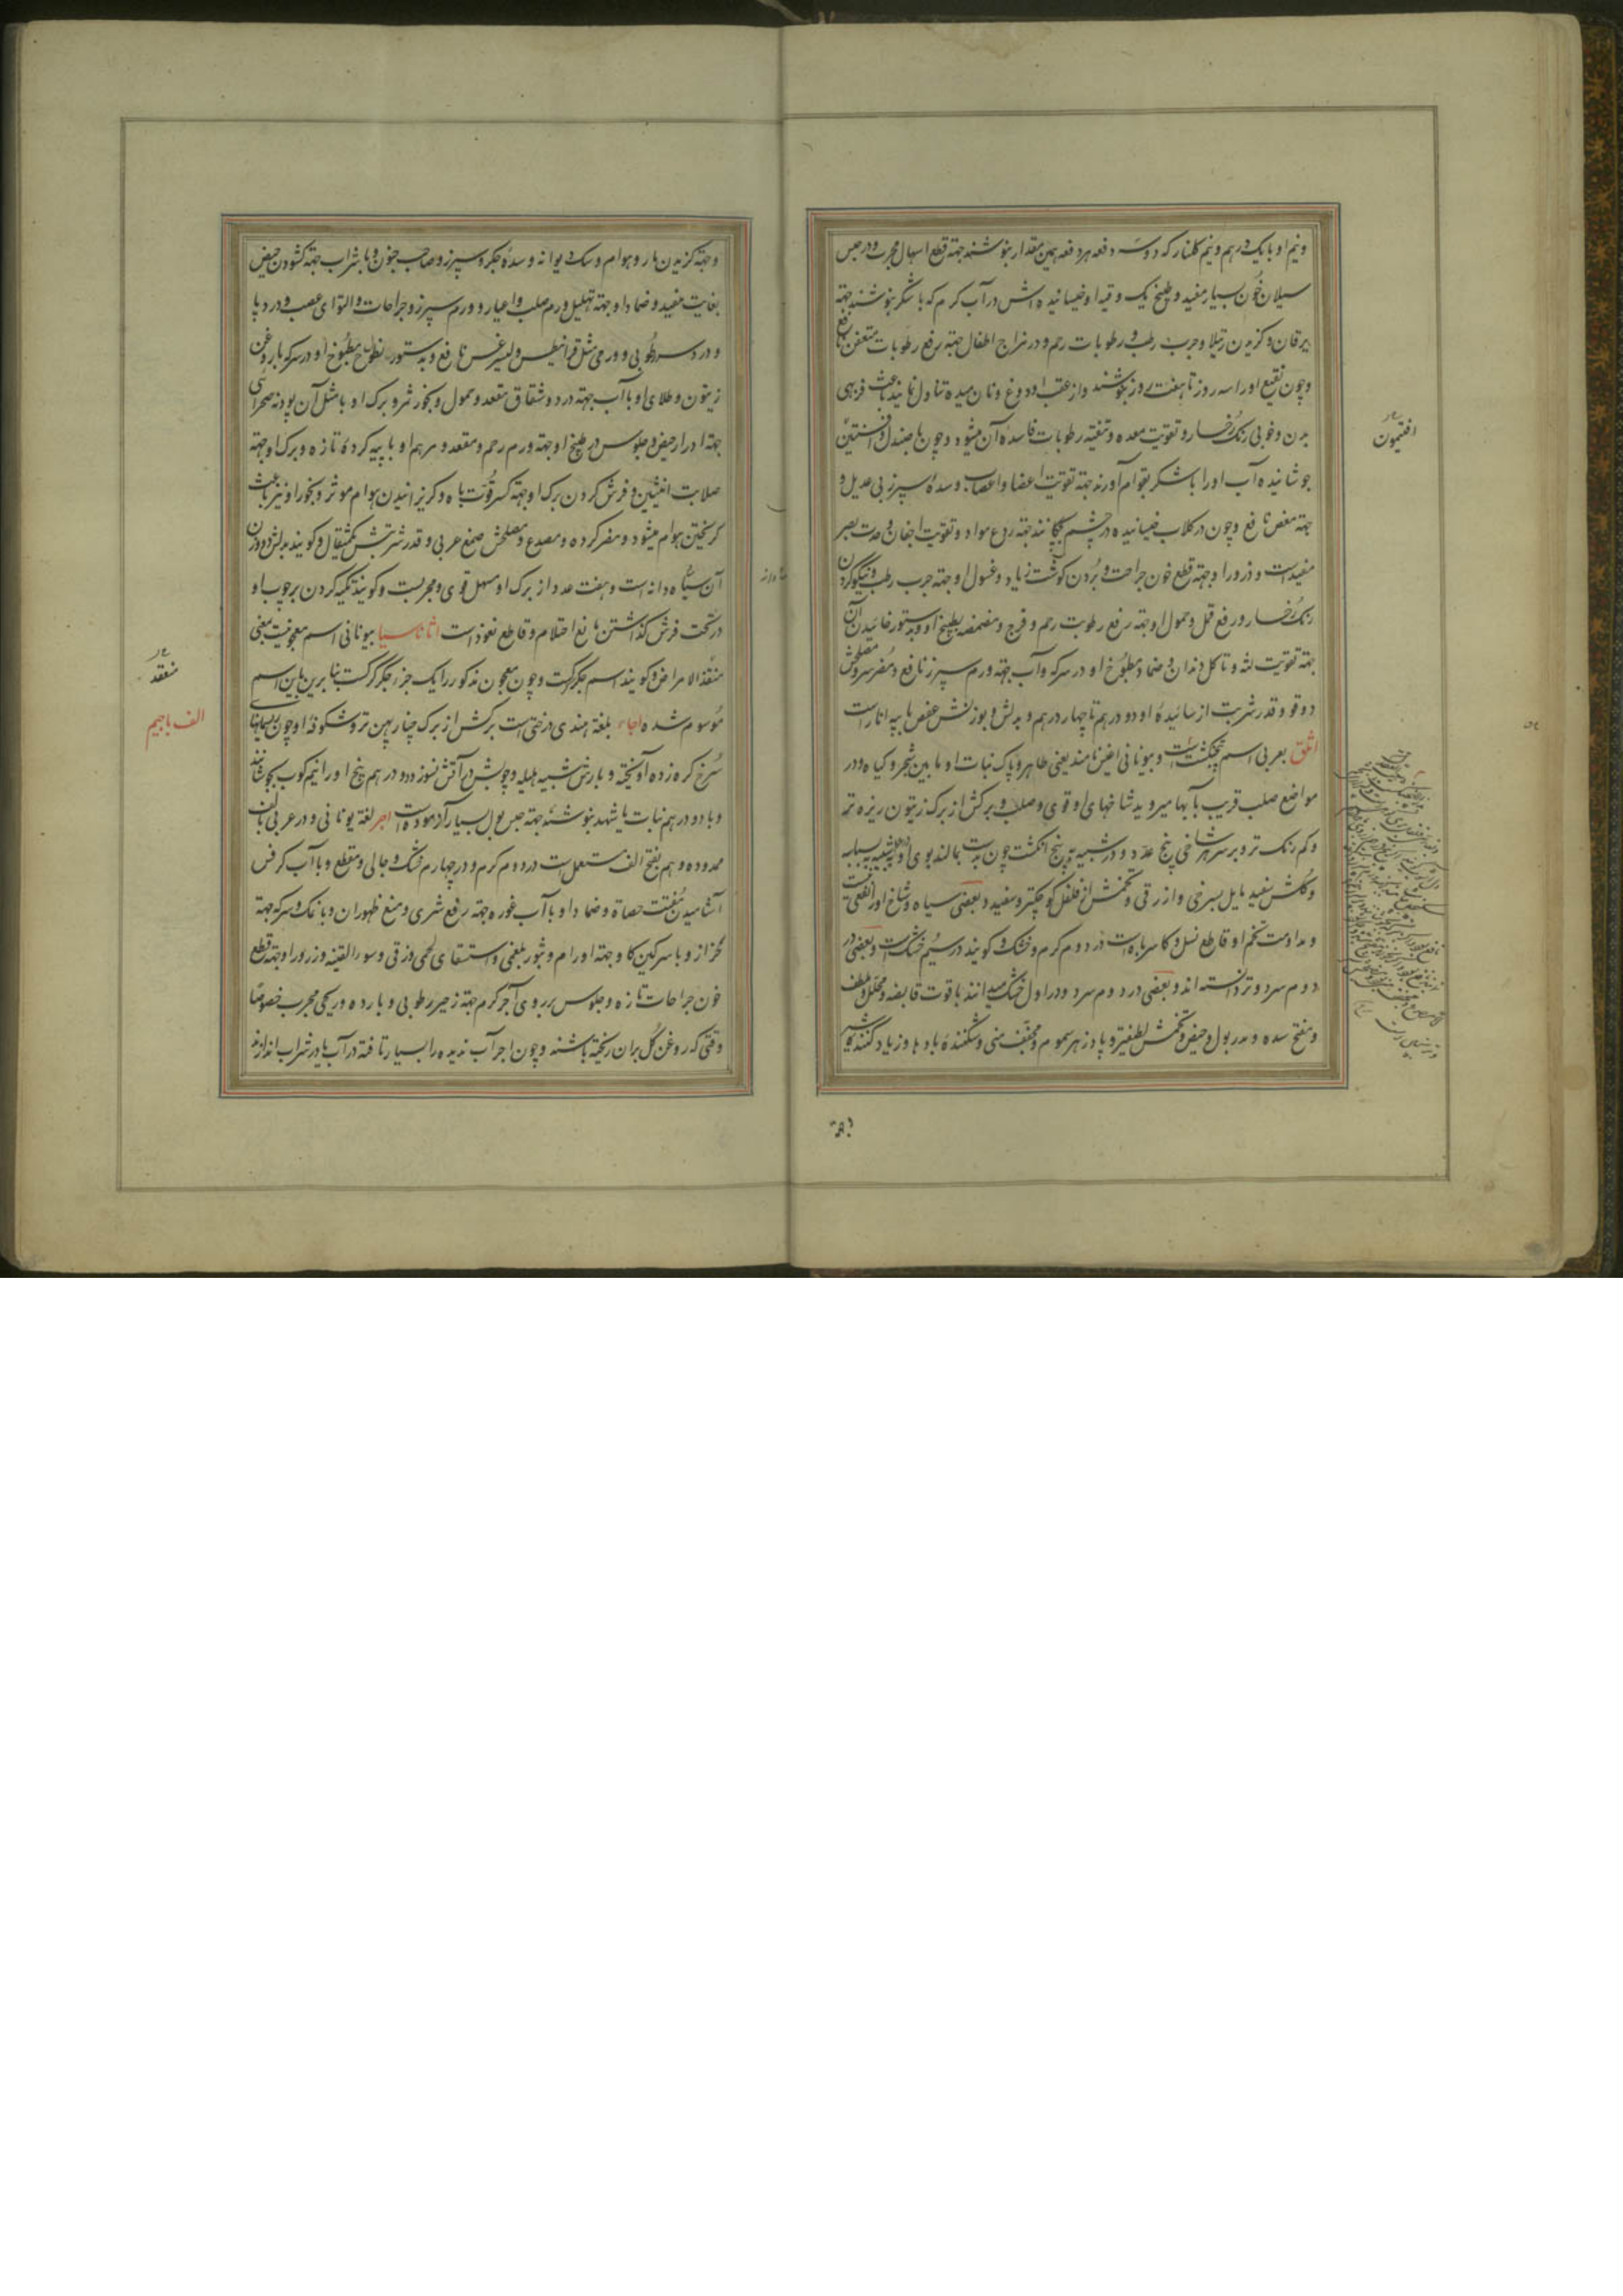 ونیم او با یک درهم و نیم کلنار که دو سه دفعه هر دفعه همین مقدار بنوشند جهة قطع اسهال مجرب و در حبس
سیلان خون بسیار مفید و طبیخ یک وقیه او خیسانیده اش در آب کرم که با شکر بنوشند جهة
یرقان و کزیدن رتیلا و جرب رطب و رطوبات رحم و در مزاج اطفال جهة رفع رطوبات متعفن نافع
و چون نقیع او را سه روز تا هفت روز بنوشند و از عقب او دوغ و نان میده تناول نمایند باعث فربهی
بدن و خوبی رنک رخسار و تقویت معده و تنقیه رطوبات فاسدهٔ آن میشود و چون با صندل و افسنتین
جوشانیده آب او را با شکر بقوام آورند جهة تقویت اعضا و اعصاب و سدهٔ سپرز بی عدیل و
جهة مغص نافع و چون در کلاب خیسانیده در چشم چکانند جهة ردع مواد و تقویت اجفان و حدت بصر
مفید است و ذرور او جهة قطع خون جراحت و بردن کوشت زیاد و غسول او جهة جرب رطب و نیکو کردن
رنک رخسار و رفع قمل و حمول او جهة رفع رطوبت رحم و فرج و مضمضه بطبیخ او و بدستور خائیدن آن
جهة تقویت لثه و تاکل دندان و ضماد مطبوخ او در سرکه و آب جهة ورم سپرز نافع و مضر سر و مصلحش
دوقو و قدر شربت از سائیدهٔ او دو درهم تا چهار درهم و بدلش بوزنش عفص یا پیه انار است
اثلق بعربی اسم پنجنکشت است و بیونانی اغنس نامند یعنی طاهر و پاک نبات او ما بین شجر و کیاه و در
مواضع صلب قریب بآبها میروید شاخهای او قوی و صلب و برکش از برک زیتون ریزه تر
و کم رنک تر و بر سر هر شاخی پنج عدد و در شبیه به پنج انکشت چون بدست بمالند بوی
و کلش سفید مایل بسرخی و ازرقی و تخمش از فلفل کوچکتر و سفید و بعضی سیاه و شاخ او
و مداومت تخم او قاطع نسل و کاسر باه است در دوم کرم و خشک و کویند در سیم خشک است و بعضی در
دوم سرد و تر دانسته اند و بعضی در دوم سرد و در اول خشک میدانند با قوت قابضه و محلل و ملطف
و مفتح سده و مدر بول و حیض و تخمش لطیفتر و پادزهر سموم و مجفف منی و شکنندهٔ بادها و زیاد کنندهٔ شیر
افتیمون
و جهة کزیدن مار و هوام و سک دیوانه و سدهٔ جکر و سپرز و صاحب جنون و با شراب جهة کشودن حیض
بغایت مفید و ضماد او جهة تحلیل ورم صلب و اعیا و ورم سپرز و جراحات و التوای عصب و درد پا
و درد سر رطوبی و ورمی مثل قرانیطس و لیثرغس نافع و بدستور نطول مطبوخ او در سرکه با روغن
زیتون و طلای او با آب جهة درد و شقاق مقعد و حمول و بخور ثمر و برک او با مثل آن پودنه صحرائی
جهة ادرار حیض و جلوس در طبیخ او جهة ورم رحم و مقعد و مرهم او با پیه کردهٔ تازه و برک او جهة
صلابت انثیین و فرش کردن برک او جهة کسر قوت باه و کریزانیدن هوام موثر و بخور او نیز باعث
کریختن هوام میشود و مضر کرده و مصدع و مصلحش صمغ عربی و قدر شربتش یکمثقال و کویند بدلش دو وزن
آن سیاه دانه است و هفت عدد از برک او مسهل قوی و مجربست و کویند تکیه کردن بر چوب او
در تحت فرش کذاشتن مانع احتلام و قاطع نعوذ است اثاناسیا بیونانی اسم معجونیست یعنی
منقذ الامراض و کویند اسم جکر کرکست و چون معجون مذکور را یک جزء جکر کرکست بنابرین باین اسم
موسوم شده اجاء بلغة هندی درختی است برکش از برک چنار پهن تر و شکوفهٔ او چون ریسمانهای
سرخ کره زده آویخته و بارش شبیه هلیله و چوبش در آتش نسوزد دو درهم پنج او را نیمکوب بجوشانند
و با دو درهم نبات یا شهد بنوشند جهة حبس بول بسیار آزموده است اجر لغة یونانی و در عربی بالف
ممدوده و هم بفتح الف مستعمل است در دوم کرم و در چهارم خشک و جالی و مقطع و با آب کرفس
آشامیدن مفتت حصاة و ضماد او با آب غوره جهة رفع شری و منع ظهور ان و با نمک و سرکه جهة
کزاز و با سرکین کاو جهة اورام و بثور بلغمی و استسقای لحمی و زقی و سوء القنیه و ذرور او جهة قطع
خون جراحات تازه و جلوس بر روی آجر کرم جهة زحیر رطوبی و بارده و ریحی مجرب خصوصا
وقتی که روغن کل بران ریخته باشند و چون اجر آب ندیده را بسیار تافته در آب یا در شراب اندازند
منقذ
الف با جیم